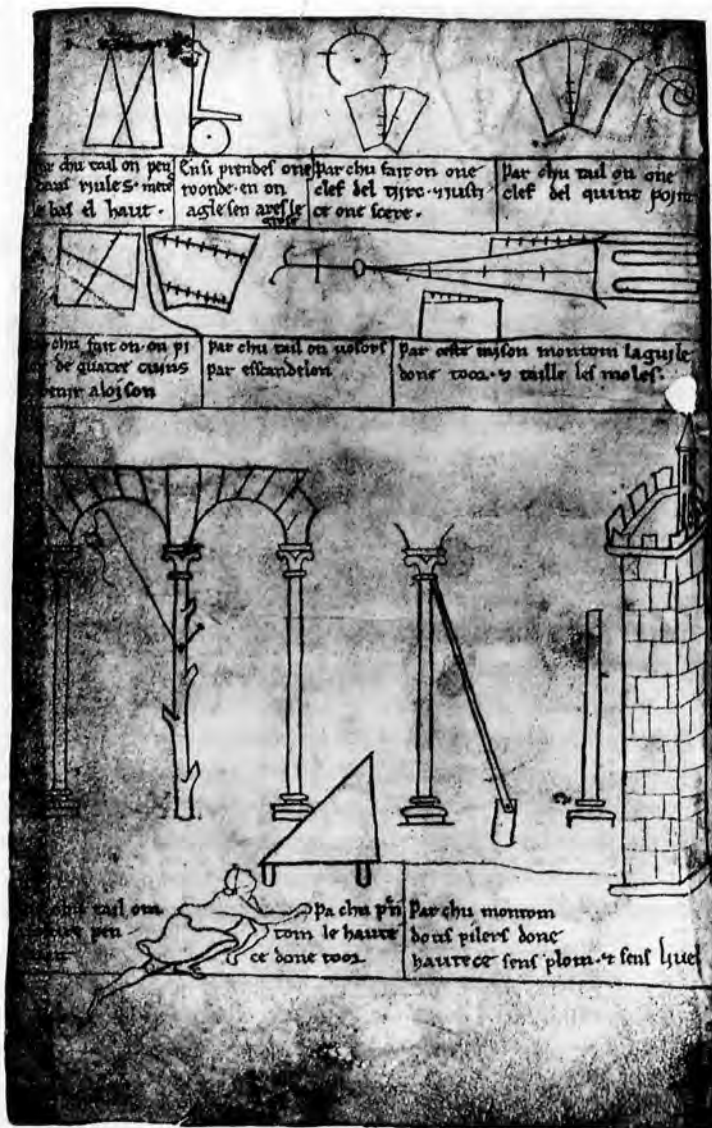 chu tail on pen
riules · mete
le bas el haut ·
Ensi prendes one
roonde · en on
agle sen ares le
Par chu fait on one
clef del tirc · 
ce one scere ·
Par chu tail on one
clef del quint point
chu fait on · on pi
de quatre cuins
venir a loison
Par chu tail on vosors
par esscandelon
Par ceste raison montom laguile
done toor · & taille les moles ·
tail om
pen
Pa chu prn
tom le haute
ce done toor
Par chu montom
dous pilers done
hautece sens plom · & sens liuel